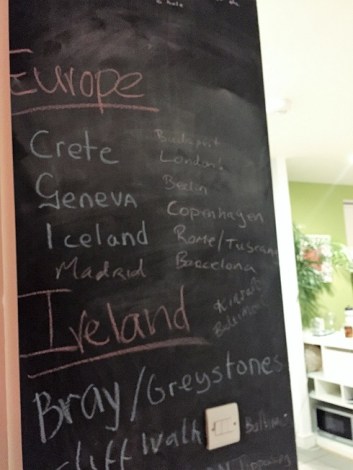 Europe
Crete
Geneva
Iceland
Madrid
Budapest
London
Berlin
Copenhagen
Rome/Tuscany
Barcelona
Ireland
Bray/Greystones
Cliff Walk